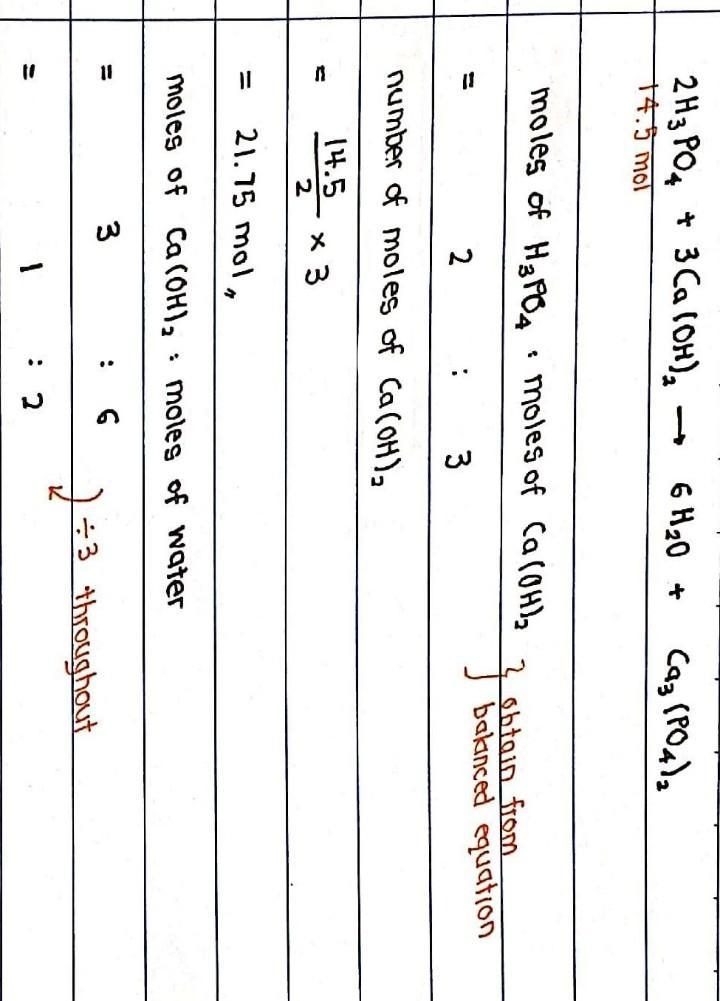 2H₃PO₄ + 3Ca(OH)₂ → 6H₂O + Ca₃(PO₄)₂
14.5 mol
moles of H₃PO₄ : moles of Ca(OH)₂ } obtain from
= 2 : 3 balanced equation
number of moles of Ca(OH)₂
= 14.5/2 × 3
= 21.75 mol
moles of Ca(OH)₂ : moles of water
= 3 : 6
÷3 throughout
= 1 : 2